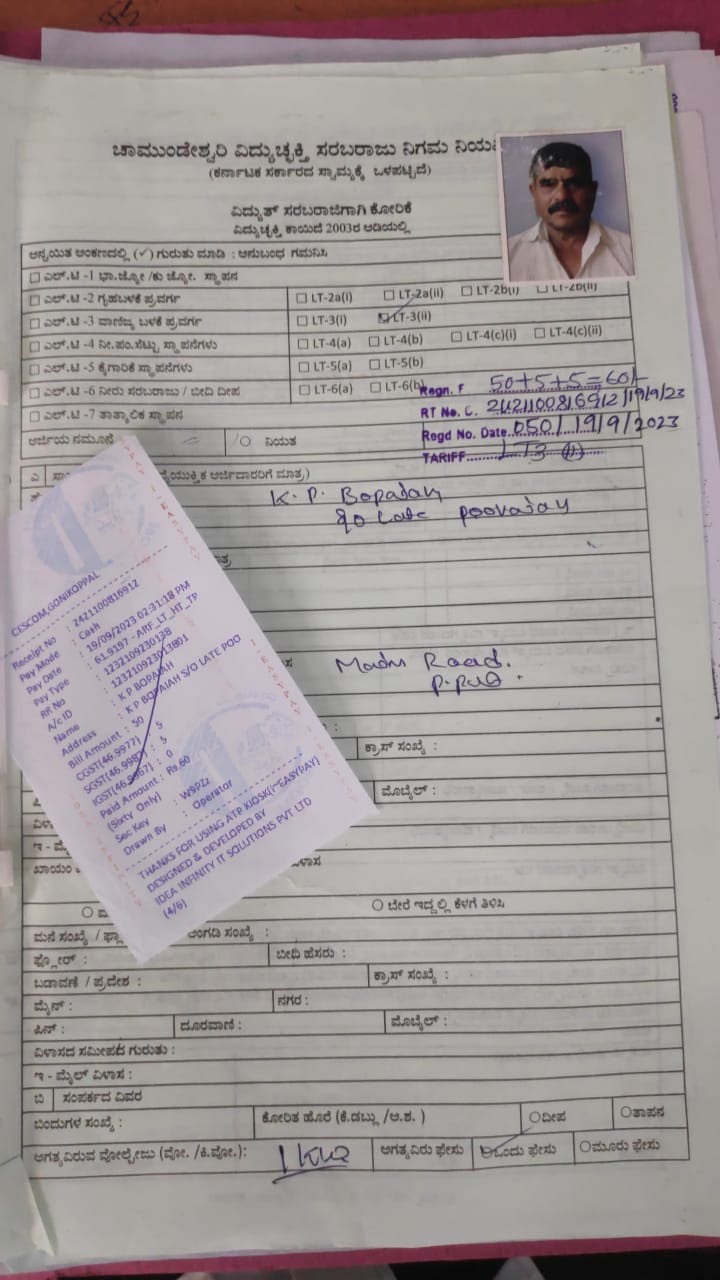 ಚಾಮುಂಡೇಶ್ವರಿ ವಿದ್ಯುಚ್ಛಕ್ತಿ ಸರಬರಾಜು ನಿಗಮ
(ಕರ್ನಾಟಕ ಸರ್ಕಾರದ ಸ್ವಾಮ್ಯಕ್ಕೆ ಒಳಪಟ್ಟಿದೆ)
ವಿದ್ಯುತ್ ಸರಬರಾಜಿಗಾಗಿ ಕೋರಿಕೆ
ವಿದ್ಯುಚ್ಛಕ್ತಿ ಕಾಯಿದೆ 2003ರ ಅಡಿಯಲ್ಲಿ
ಅನ್ವಯಿತ ಅಂಕಣದಲ್ಲಿ (✓) ಗುರುತು ಮಾಡಿ : ಅನುಬಂಧ ಗಮನಿಸಿ
ಎಲ್.ಟಿ -1 ಭಾ.ಜ್ಯೋ /ಕು ಜ್ಯೋ. ಸ್ಥಾಪನ
ಎಲ್.ಟಿ -2 ಗೃಹಬಳಕೆ ಪ್ರವರ್ಗ LT-2a(i) LT-2a(ii) LT-2b(i) LT-2b(ii)
ಎಲ್.ಟಿ -3 ವಾಣಿಜ್ಯ ಬಳಕೆ ಪ್ರವರ್ಗ LT-3(i) LT-3(ii)
ಎಲ್.ಟಿ -4 ನೀ.ಪಂ.ಸೆಟ್ಟು ಸ್ಥಾಪನೆಗಳು LT-4(a) LT-4(b) LT-4(c)(i) LT-4(c)(ii)
ಎಲ್.ಟಿ -5 ಕೈಗಾರಿಕೆ ಸ್ಥಾಪನೆಗಳು LT-5(a) LT-5(b)
ಎಲ್.ಟಿ -6 ನೀರು ಸರಬರಾಜು / ಬೀದಿ ದೀಪ LT-6(a) LT-6(b)
Regn. F 50+5+5=60/-
ಎಲ್.ಟಿ -7 ತಾತ್ಕಾಲಿಕ ಸ್ಥಾಪನ
RT No. C. 2421100816912/19/9/23
ಅರ್ಜಿಯ ನಮೂನೆ ನಿಯತ
Regd No. Date 050/19/9/2023
TARIFF LT3 (ii)
ಎ ಅರ್ಜಿದಾರರಿಗೆ ಮಾತ್ರ)
K. P. Bopaiah
S/o Late Poovaiah
Madu Raad.
P.Pet.
CESCOM,GONIKOPPAL
Receipt No : 2421100816912
Pay Mode : Cash
Pay Date : 19/09/2023 02:31:18 PM
Pay Type : 61.9197 - ARF_LT_HT_TP
RR No : 1232109230138
A/c ID : 12321092303801
Name : K P BOPAIAH
Address : K P BOPAIAH S/O LATE POO
Bill Amount : 50
CGST(46.9977) : 5
SGST(46.9987) : 5
IGST(46.9967) : 0
Paid Amount : Rs.60
(Sixty Only)
Sec Key : W9PZz
Drawn By : Operator
THANKS FOR USING ATP KIOSK(I~EASYPAY)
DESIGNED & DEVELOPED BY
IDEA INFINITY IT SOLUTIONS PVT LTD
(4/6)
ಕ್ರಾಸ್ ಸಂಖ್ಯೆ :
ಮೊಬೈಲ್ :
ಬೇರೆ ಇದ್ದಲ್ಲಿ ಕೆಳಗೆ ತಿಳಿಸಿ
ಮನೆ ಸಂಖ್ಯೆ / ಅಂಗಡಿ ಸಂಖ್ಯೆ :
ಫ್ಲೋರ್ : ಬೀದಿ ಹೆಸರು :
ಬಡಾವಣೆ / ಪ್ರದೇಶ : ಕ್ರಾಸ್ ಸಂಖ್ಯೆ :
ಮೈನ್ : ನಗರ :
ಪಿನ್ : ದೂರವಾಣಿ : ಮೊಬೈಲ್ :
ವಿಳಾಸದ ಸಮೀಪದ ಗುರುತು :
ಇ - ಮೈಲ್ ವಿಳಾಸ :
ಬಿ ಸಂಪರ್ಕದ ವಿವರ
ಬಂದುಗಳ ಸಂಖ್ಯೆ : ಕೋರಿತ ಹೊರೆ (ಕೆ.ಡಬ್ಲು /ಅ.ಶ. ) ದೀಪ ತಾಪನ
ಅಗತ್ಯವಿರುವ ವೋಲ್ಟೇಜು (ವೋ. /ಕಿ.ವೋ.): 1 KW ಅಗತ್ಯವಿರು ಫೇಸು ಒಂದು ಫೇಸು ಮೂರು ಫೇಸು